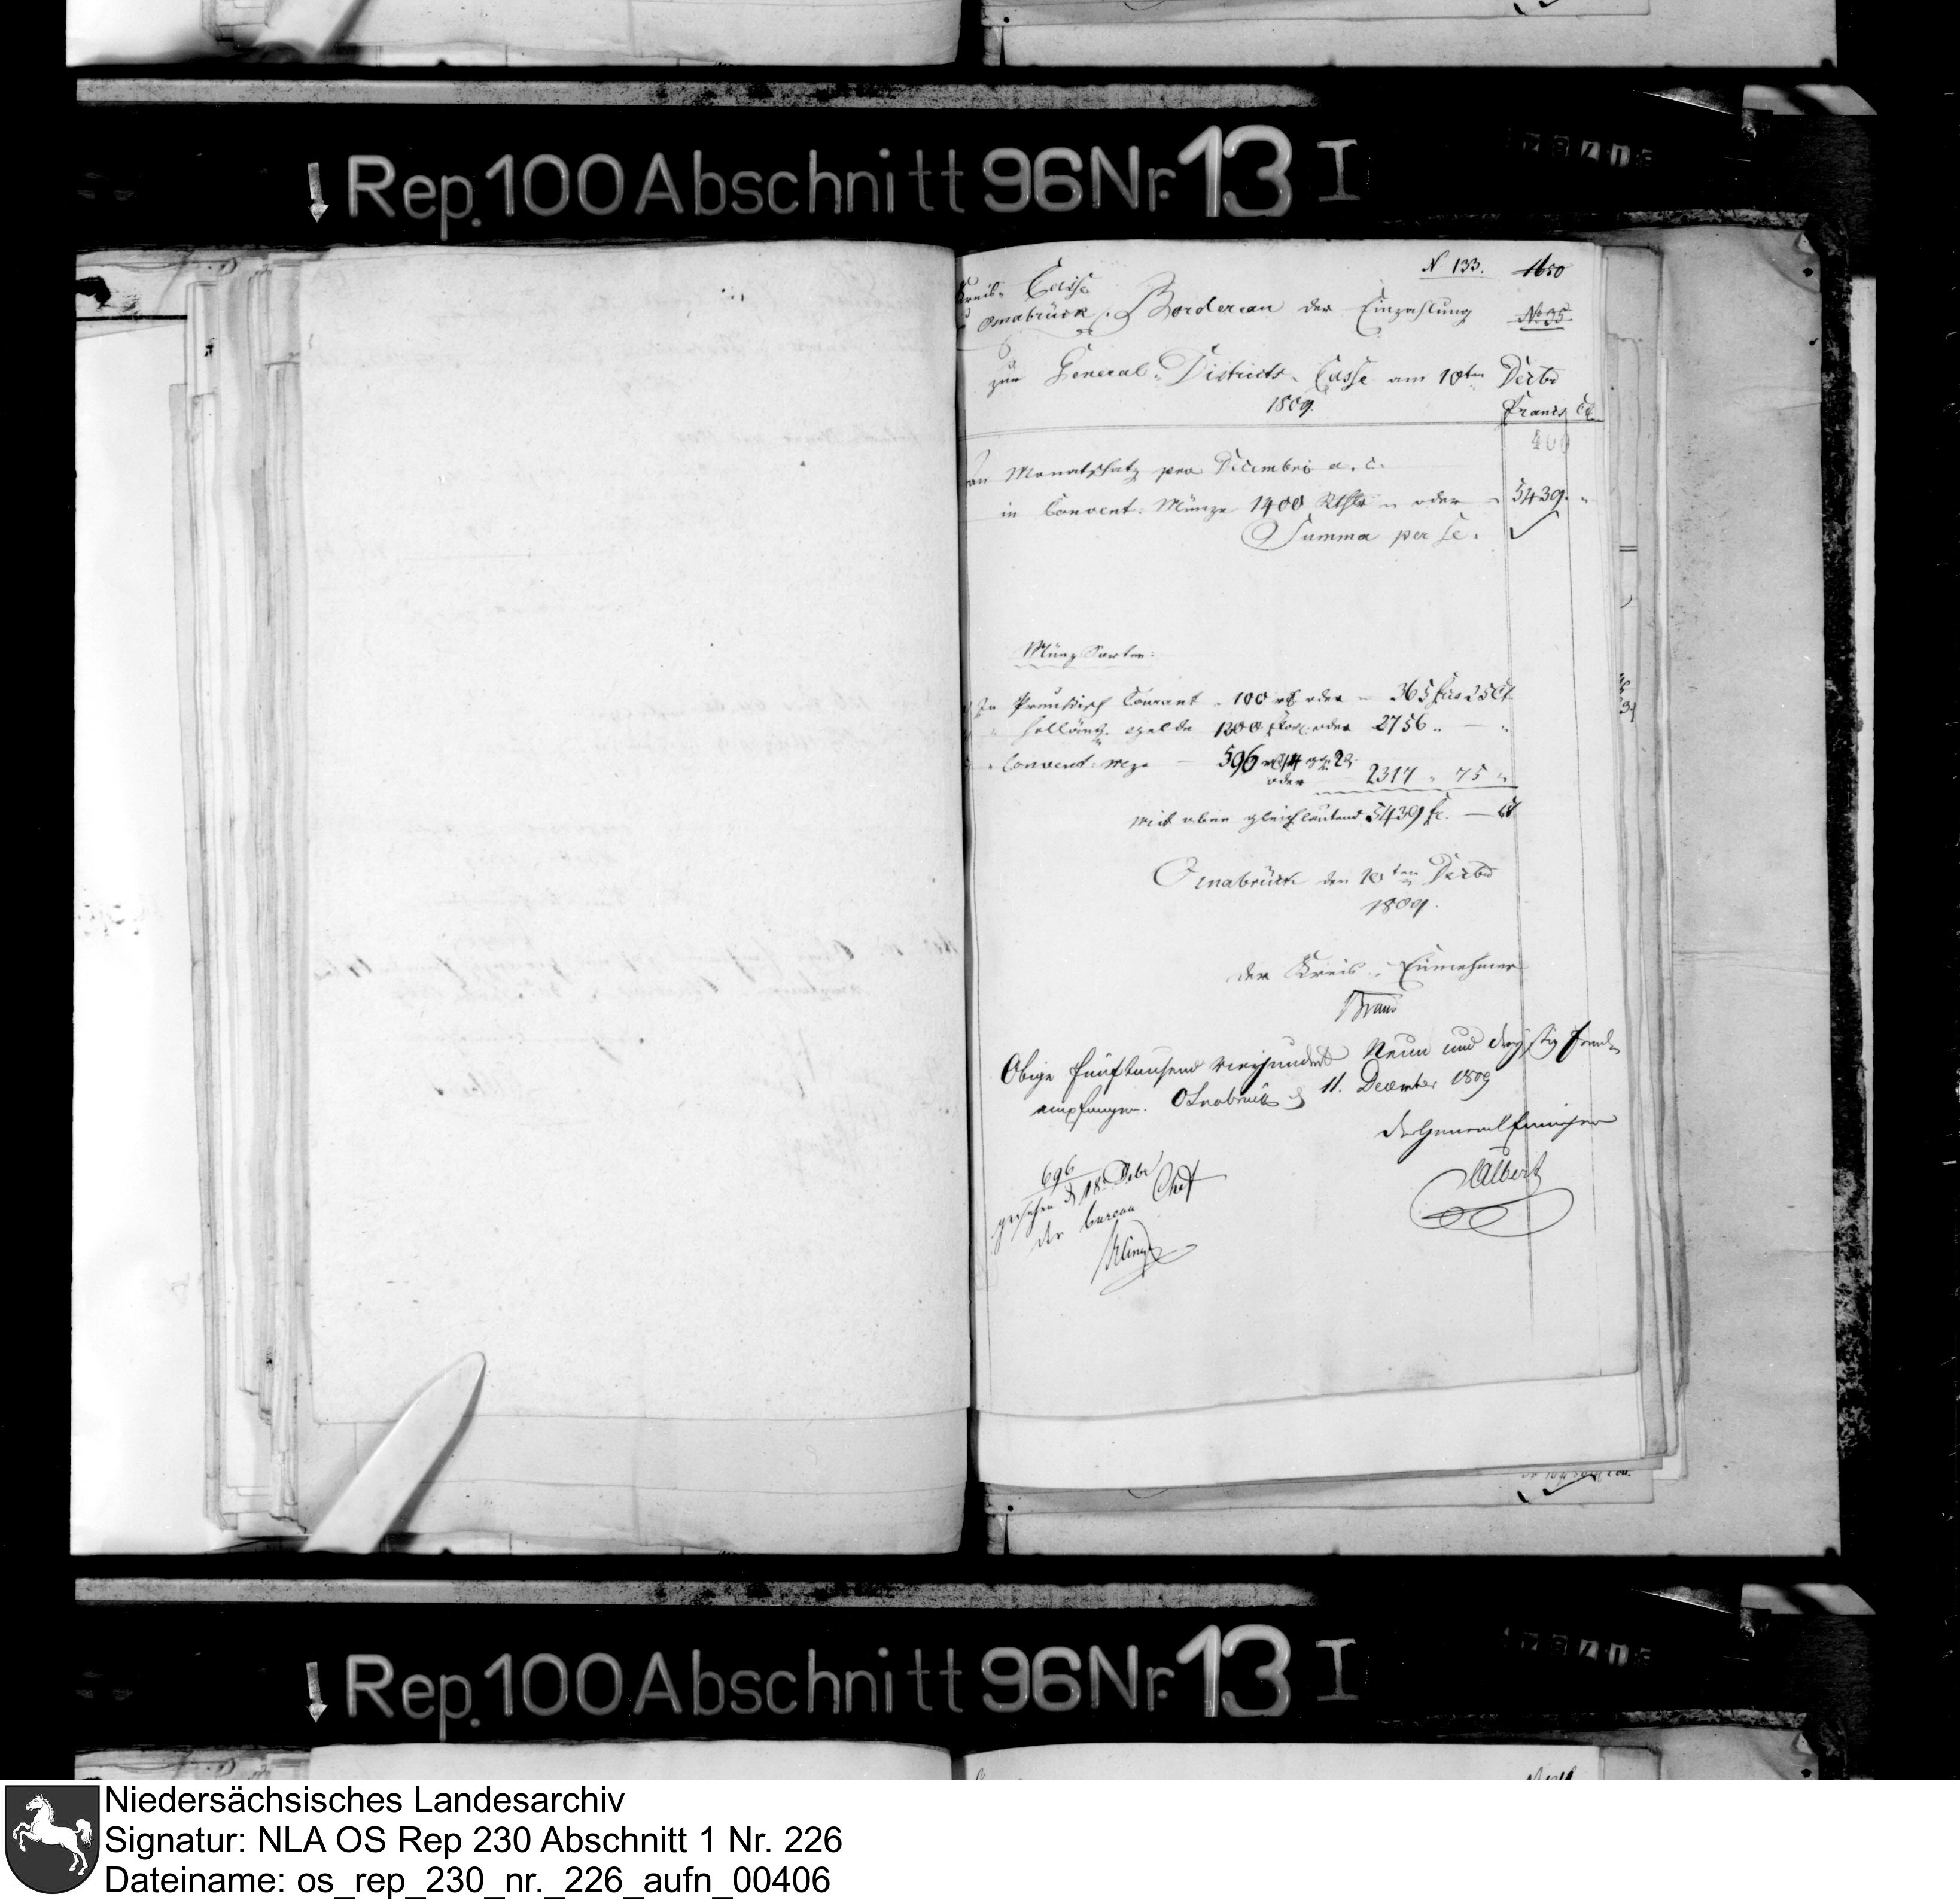 Rep. 100 Abschnitt 96 Nr. 13 I
N 133. 1650
Kreis- Casse
Osnabrück. Bordereau der Einzahlung No 35
zur General-Districts-Casse am 10ten Decbr
1809.
Francs Ct
400
an Monatssatz pro Decembri a. c.
in Convent: Münze 1400 Rthlr „ oder - 5439. „
Summa per se.
Münz Sorten:
In Preußisch Courant - 100 rt oder - 365 frcs 25 Ct
" holländ. gelde 1300 flor. oder 2756 " — "
" Convent: mze — 596 rt 14 ggr 2 d
oder 2317 " 75 "
mit oben gleichlautend 5439 fr. — Ct
Osnabrück den 10ten Decbr
1809.
der Kreis-Einnehmer
Obige fünftausend vierhundert Neun und dreyssig franken
empfangen. Osnabrück d 11. December 1809
der General Einnehmer
Albert
696
gesehen d 18. Decbr
der bureau Chef
Rep. 100 Abschnitt 96 Nr. 13 I
Niedersächsisches Landesarchiv
Signatur: NLA OS Rep 230 Abschnitt 1 Nr. 226
Dateiname: os_rep_230_nr._226_aufn_00406